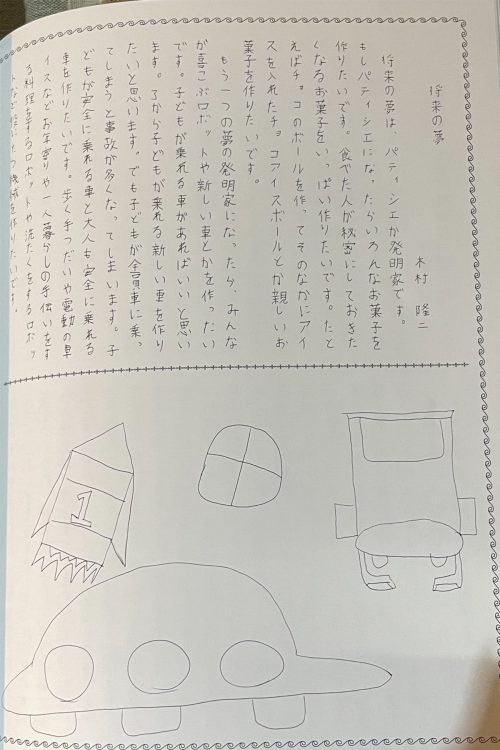 将来の夢
木村 隆二
将来の夢は、パティシエか発明家です。
もしパティシエになったらいろんなお菓子を
作りたいです。食べた人が秘密にしておきた
くなるお菓子をいっぱい作りたいです。たと
えばチョコのボールを作ってそのなかにアイ
スを入れたチョコアイスボールとか親しいお
菓子を作りたいです。
もう一つの夢の発明家になったら、みんな
が喜こぶロボットや新しい車とかを作ったい
です。子どもが乗れる車があればいいと思い
ます。だから子どもが乗れる新しい車を作り
たいと思います。でも子どもが全員車に乗っ
てしまうと事故が多くなってしまいます。子
どもが安全に乗れる車と大人も安全に乗れる
車を作りたいです。歩く手つだいや電動の車
イスなどお年寄りや一人暮らしの手伝いをす
る料理をするロボットや洗たくをするロボッ
トなど役に立つ機械を作りたいです。
1